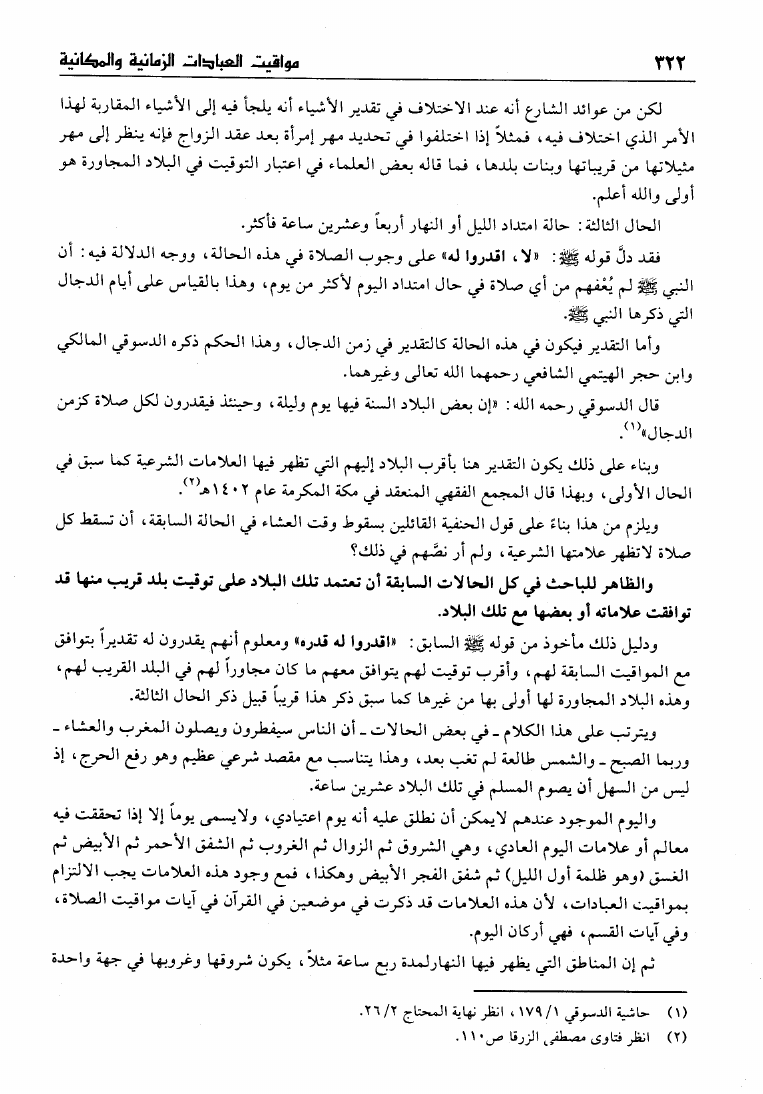 ٣٢٢
مواقيت العبادات الزمانية والمكانية
لكن من عوائد الشارع أنه عند الاختلاف في تقدير الأشياء أنه يلجأ فيه إلى الأشياء المقاربة لهذا
الأمر الذي اختلاف فيه، فمثلاً إذا اختلفوا في تحديد مهر إمرأة بعد عقد الزواج فإنه ينظر إلى مهر
مثيلاتها من قريباتها وبنات بلدها، فما قاله بعض العلماء في اعتبار التوقيت في البلاد المجاورة هو
أولى والله أعلم.
الحال الثالثة: حالة امتداد الليل أو النهار أربعاً وعشرين ساعة فأكثر.
فقد دلَّ قوله ﷺ: «لا، اقدروا له» على وجوب الصلاة في هذه الحالة، ووجه الدلالة فيه: أن
النبي ﷺ لم يُعْفهم من أي صلاة في حال امتداد اليوم لأكثر من يوم، وهذا بالقياس على أيام الدجال
التي ذكرها النبي ﷺ.
وأما التقدير فيكون في هذه الحالة كالتقدير في زمن الدجال، وهذا الحكم ذكره الدسوقي المالكي
وابن حجر الهيتمي الشافعي رحمهما الله تعالى وغيرهما.
قال الدسوقي رحمه الله: «إن بعض البلاد السنة فيها يوم وليلة، وحينئذ فيقدرون لكل صلاة كزمن
الدجال»(١).
وبناء على ذلك يكون التقدير هنا بأقرب البلاد إليهم التي تظهر فيها العلامات الشرعية كما سبق في
الحال الأولى، وبهذا قال المجمع الفقهي المنعقد في مكة المكرمة عام ١٤٠٢هـ(٢).
ويلزم من هذا بناءً على قول الحنفية القائلين بسقوط وقت العشاء في الحالة السابقة، أن تسقط كل
صلاة لاتظهر علامتها الشرعية، ولم أر نصَّهم في ذلك؟
والظاهر للباحث في كل الحالات السابقة أن تعتمد تلك البلاد على توقيت بلد قريب منها قد
توافقت علاماته أو بعضها مع تلك البلاد.
ودليل ذلك مأخوذ من قوله ﷺ السابق: «اقدروا له قدره» ومعلوم أنهم يقدرون له تقديراً بتوافق
مع المواقيت السابقة لهم، وأقرب توقيت لهم يتوافق معهم ما كان مجاوراً لهم في البلد القريب لهم،
وهذه البلاد المجاورة لها أولى بها من غيرها كما سبق ذكر هذا قريباً قبيل ذكر الحال الثالثة.
ويترتب على هذا الكلام ـ في بعض الحالات ـ أن الناس سيفطرون ويصلون المغرب والعشاء ـ
وربما الصبح ـ والشمس طالعة لم تغب بعد، وهذا يتناسب مع مقصد شرعي عظيم وهو رفع الحرج، إذ
ليس من السهل أن يصوم المسلم في تلك البلاد عشرين ساعة.
واليوم الموجود عندهم لايمكن أن نطلق عليه أنه يوم اعتيادي، ولايسمى يوماً إلا إذا تحققت فيه
معالم أو علامات اليوم العادي، وهي الشروق ثم الزوال ثم الغروب ثم الشفق الأحمر ثم الأبيض ثم
الغسق (وهو ظلمة أول الليل) ثم شفق الفجر الأبيض وهكذا، فمع وجود هذه العلامات يجب الالتزام
بمواقيت العبادات، لأن هذه العلامات قد ذكرت في موضعين في القرآن في آيات مواقيت الصلاة،
وفي آيات القسم، فهي أركان اليوم.
ثم إن المناطق التي يظهر فيها النهارلمدة ربع ساعة مثلاً، يكون شروقها وغروبها في جهة واحدة
(١) حاشية الدسوقي ١٧٩/١، انظر نهاية المحتاج ٢٦/٢.
(٢) انظر فتاوى مصطفى الزرقا ص١١٠.